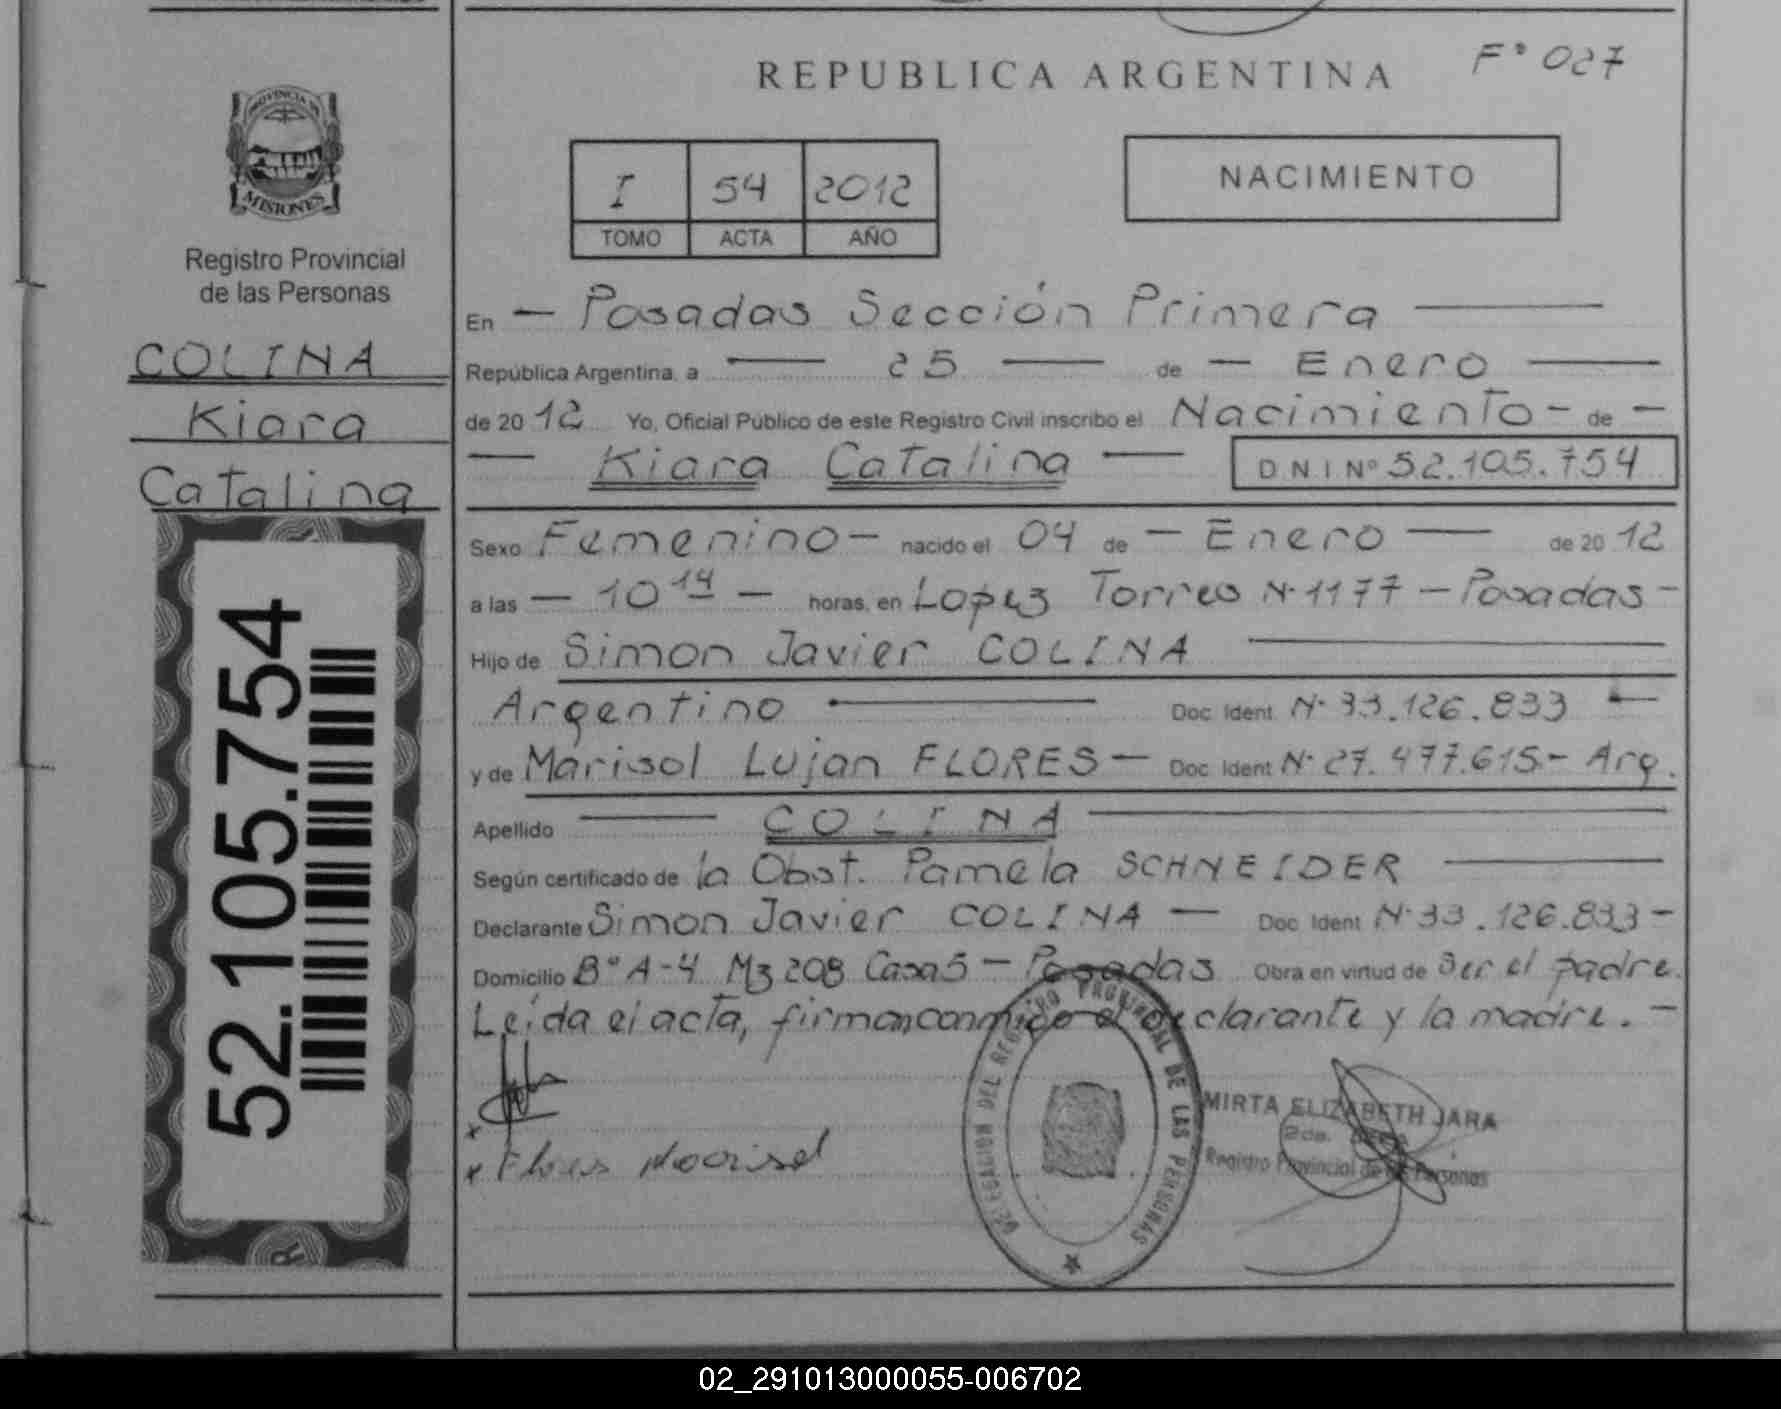 REPUBLICA ARGENTINA
F° 027
PROVINCIA DE
MISIONES
Registro Provincial
de las Personas
COLINA
Kiara
Catalina
52.105.754
I 54 2012
TOMO ACTA AÑO
NACIMIENTO
En — Posadas Sección Primera —
República Argentina, a — 25 — de — Enero —
de 20 12 Yo, Oficial Público de este Registro Civil inscribo el Nacimiento - de -
— Kiara Catalina — D N I Nº 52.105.754
Sexo Femenino - nacido el 04 de - Enero — de 20 12
a las — 10 14 — horas, en Lopez Torres N· 1177 - Posadas -
Hijo de Simon Javier COLINA —
Argentino — Doc Ident N· 33.126.833 —
y de Marisol Lujan FLORES - Doc Ident N· 27.477.615.- Arg.
Apellido — COLINA —
Según certificado de la Obst. Pamela SCHNEIDER —
Declarante Simon Javier COLINA — Doc Ident N· 33.126.833 -
Domicilio B° A-4 Mz 208 Casa 5 - Posadas Obra en virtud de Ser el padre.
Leída el acta, firman conmigo el declarante y la madre. -
x
x Flores Marisol
DELEGACION DEL REGISTRO PROVINCIAL DE LAS PERSONAS
MIRTA ELIZABETH JARA
2da.
Registro Provincial de las Personas
02_291013000055-006702